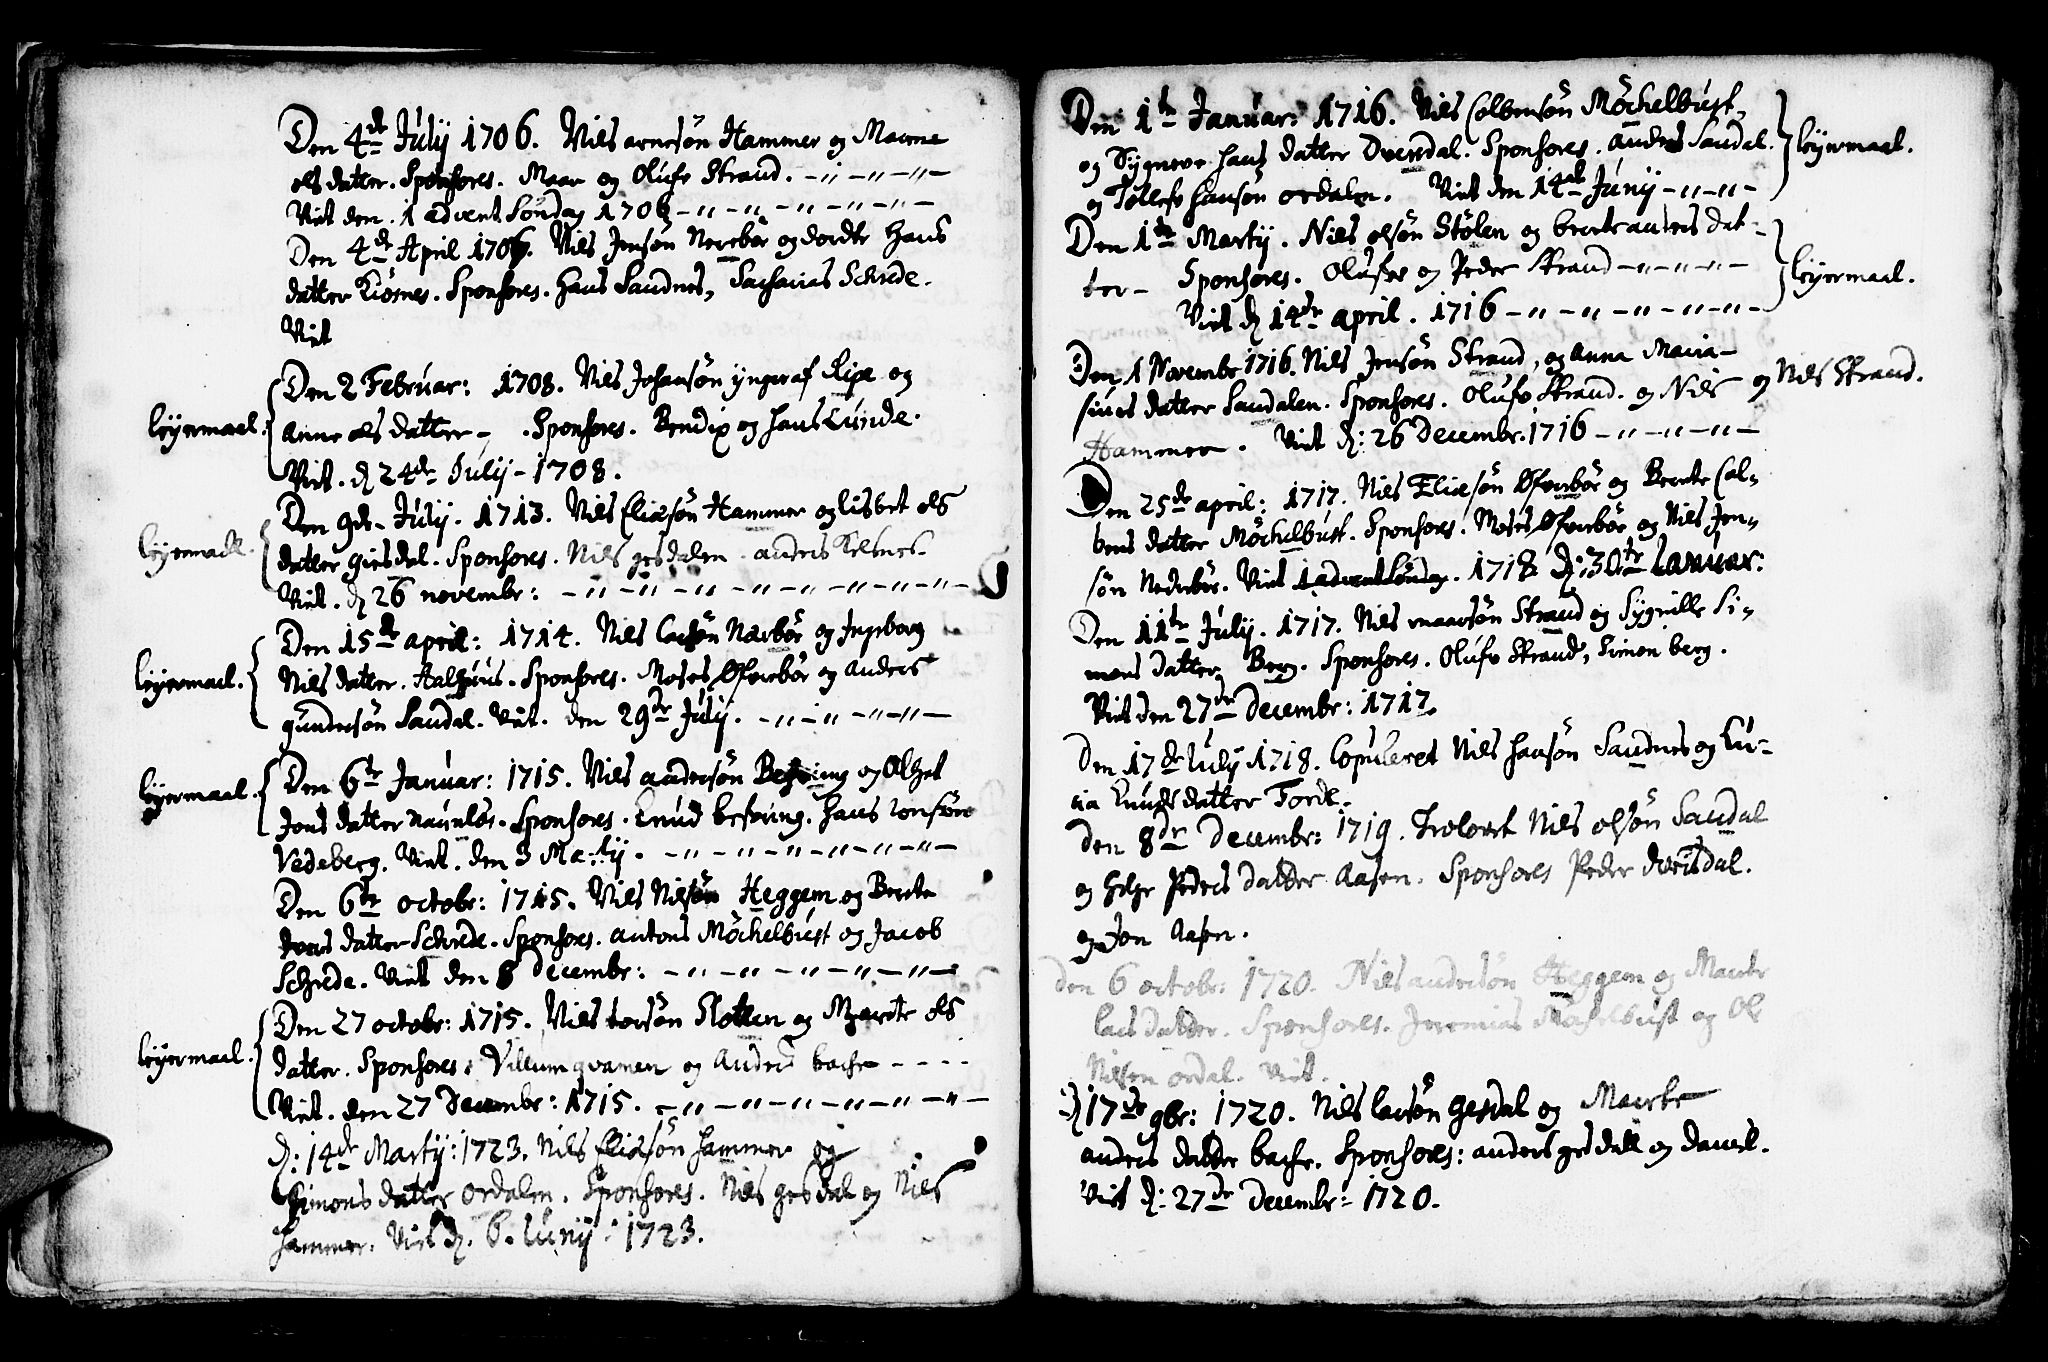 Den 4de Julij 1706. Niels arnesön Hammer og Marne
ols datter. Sponsores. Maar og Oluf Strand. -"-"-"-
Viet den 1 advent Söndag 1706 -"-"-"-"-"-
Den 4de April 1706. Nils Jensön Nerebör og dordte Hans
datter Kiösnes. Sponsores. Hans Sandnes, Sacharias Schrede.
Viet
leyermaal. Den 2 Februar: 1708. Nils Johansön yngeraf Ripe og
Anne ols datter - . Sponsores. Bendix og hans Lunde.
Viet. d 24de Julij - 1708.
Den 9de Julij. 1713. Nils Eliæsön Hammer og lisbet ols
leyermaal. datter giesdal. Sponsores. Nils gesdalen. anders
Viet. d 26 novembr: -"-"-"-"-"-"-"-"-
Den 15de april: 1714. Nils Larsön Nærbör og Ingeborg
leyermaal. Nils datter. Aalhuus. Sponsores. Moses Øfverbör og anders
gundersön Sandal. Viet. den 29de Julij. -"-"-"-"-
leyermaal. Den 6te Januar: 1715. Nils andersön Befring og Olhet
Jons datter. Sponsores. Knud befring. hans
Vedeberg. Viet. den 3 Martij. -"-"-"-"-"-"-
Den 6te octobr: 1715. Nils Nilsön Heggem og Berete
datter Schrede. Sponsores. antons Möchelbust og Jacob
Schrede. Viet den 8 decembr: -"-"-"-"-"-
Den 27 octobr: 1715. Niels torsön Slotten og Marete ols
leyermaal. datter. Sponsores: Villum qvamen og Anders bache - - - -
Viet. den 27 Decembr: 1715. -"-"-"-"-"-"-
d: 14de Martij: 1723. Nils Eliæsön hammer og
Simons datter ordalen. Sponsores. Nils gesdal og Nils
hammer. Viet d. 6. Iunij: 1723.
Den 1te Januar: 1716. Nils Colbensön Möchelbust
og Sygneve hans datter Dvendal. Sponsores. anders Sandal. leyermaal.
og Tollefs hansön ordalen. Viet den 14de Junij -"-"-
Den 1te Martij. Niels olsön Stölen og berete anders dat-
ter - Sponsores. Olufs og Peder Strand -"-"-"- leyermaal.
Viet d 14de april. 1716 -"-"-"-"-"-
Den 1 Novembr 1716. Nils Jensön Strand, og anna Maria-
sines datter Sandalen. Sponsores. Oluf Strand. og Nils og Nils Strand.
Hammer. Viet d: 26 decembr. 1716 -"-"-"-
Den 25de april: 1717. Nils Eliæsön Øfverbör og Berete Col-
bens datter Möchelbust. Sponsores. Moses Øfverbör og Nils Jen-
sön Nedrebör. Viet 1 advent Söndag. 1718 d: 30te Ianuar:
Den 11te Julij. 1717. Nils maarsön Strand og Sygnille Si-
mons datter Berg. Sponsores. Oluf Strand, Simon berg.
Viet den 27de decembr: 1717.
Den 17de Iulij 1718. Copuleret Nils hansön Sandnes og Lu-
cia Knuds datter Forde.
Den 8de decembr: 1719. Trolovet Nils olsön Sandal
og Peders datter Aasen. Sponsores Peder dvergsdal.
og Jon Aasen.
Den 6 octobr: 1720. Niels andersön Heggem og Marte
lars datter. Sponsores. Jeremias Möchelbust og Ole
Nilsen ordal. Viet.
d 17de 9br: 1720. Nils larsön gesdal og Marte
anders datter bache. Sponsores: anders gesdall og daniel.
Viet d: 27de Decembr: 1720.